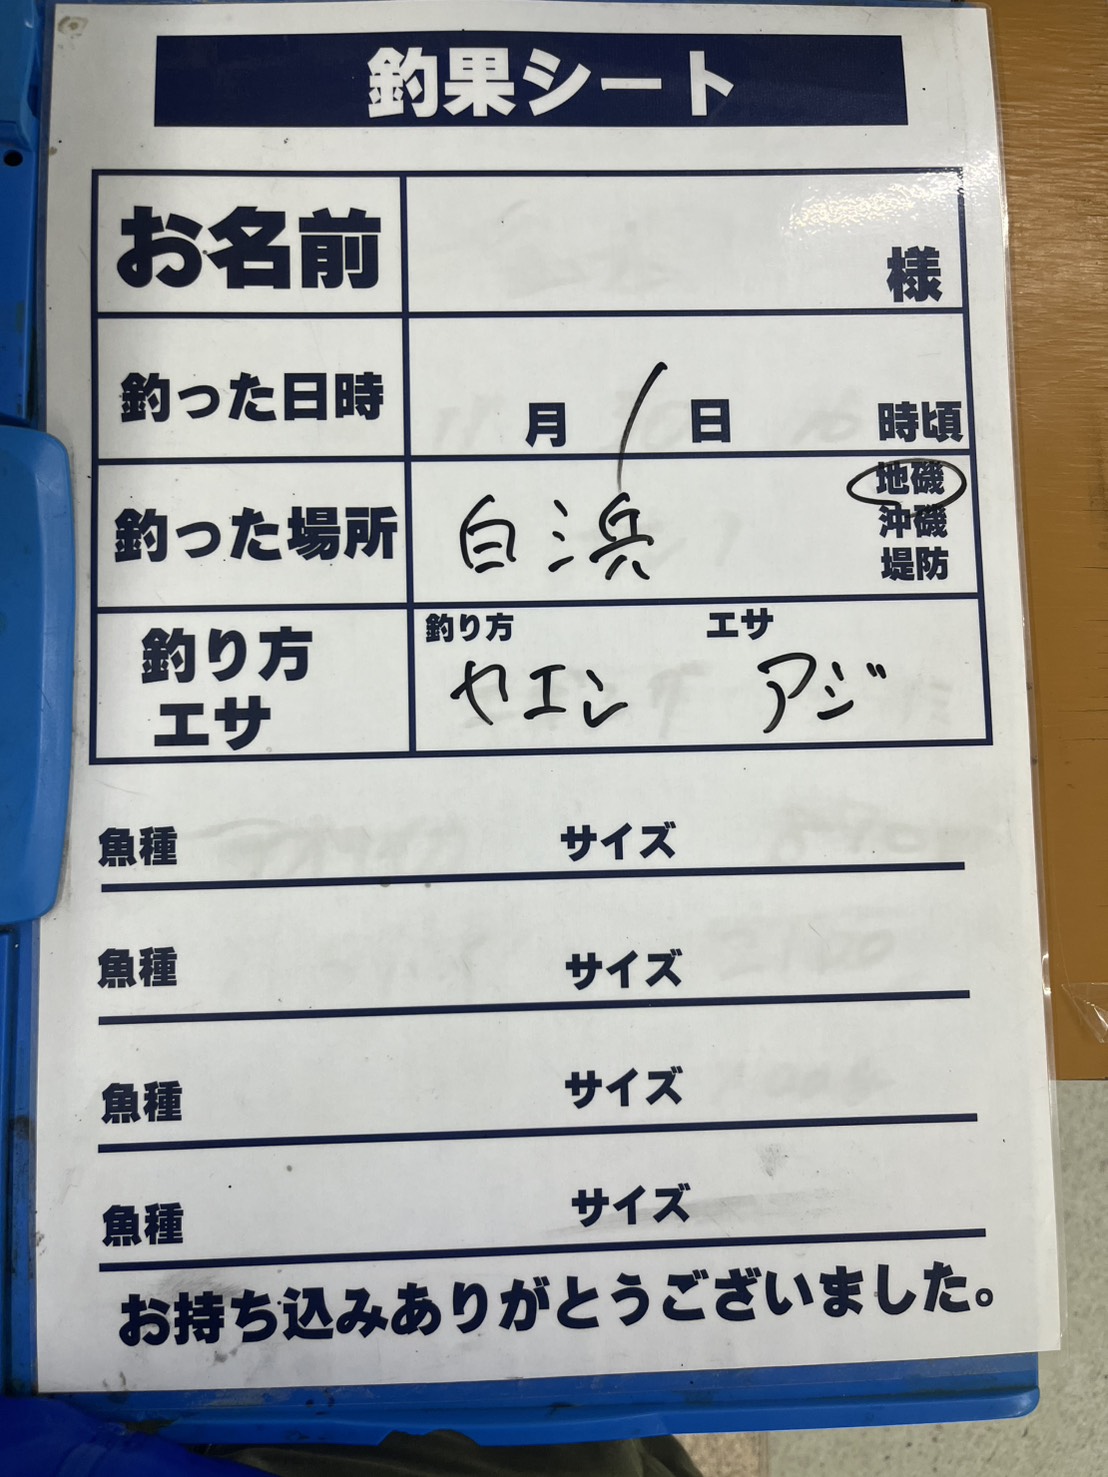 釣果シート
お名前 様
釣った日時 月 / 日 時頃
釣った場所 白浜 地磯
沖磯
堤防
釣り方 エサ
釣り方
エサ
ヤエン アジ
魚種 サイズ
魚種 サイズ
魚種 サイズ
魚種 サイズ
お持ち込みありがとうございました。